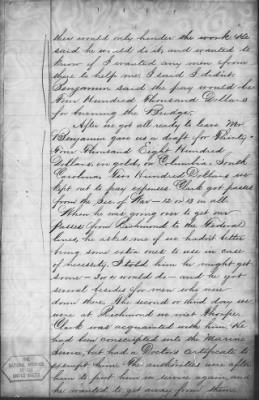 this would only hinder the work. He
said he would do it, and wanted to
know if I wanted any men from
there to help me. I said I didn't.
Benjamin said the pay would be
Four Hundred Thousand Dollars
for burning the Bridge.
After we got all ready to leave Mr
Benjamin gave us a draft for Thirty-
four Thousand Eight Hundred
Dollars, in gold, on Columbia South
Carolina. Two Hundred Dollars we
kept out to pay expenses. Clark got passes
from the Sec. of War - 12 or 13 in all.
When he was going over to get our
passes from Richmond to the Federal
lines, he asked me if we hadn't better
bring some extra ones to use in case
of necessity. I told him he might get
some - two would do - and he got
several besides for men who were
down there. The second or third day we
were at Richmond we met Thorpe.
Clark was acquainted with him. He
had been conscripted into the Marine
Service, but had a Doctor's certificate to
exempt him. The authorities were after
him to put him in service again, and
he wanted to get away from them